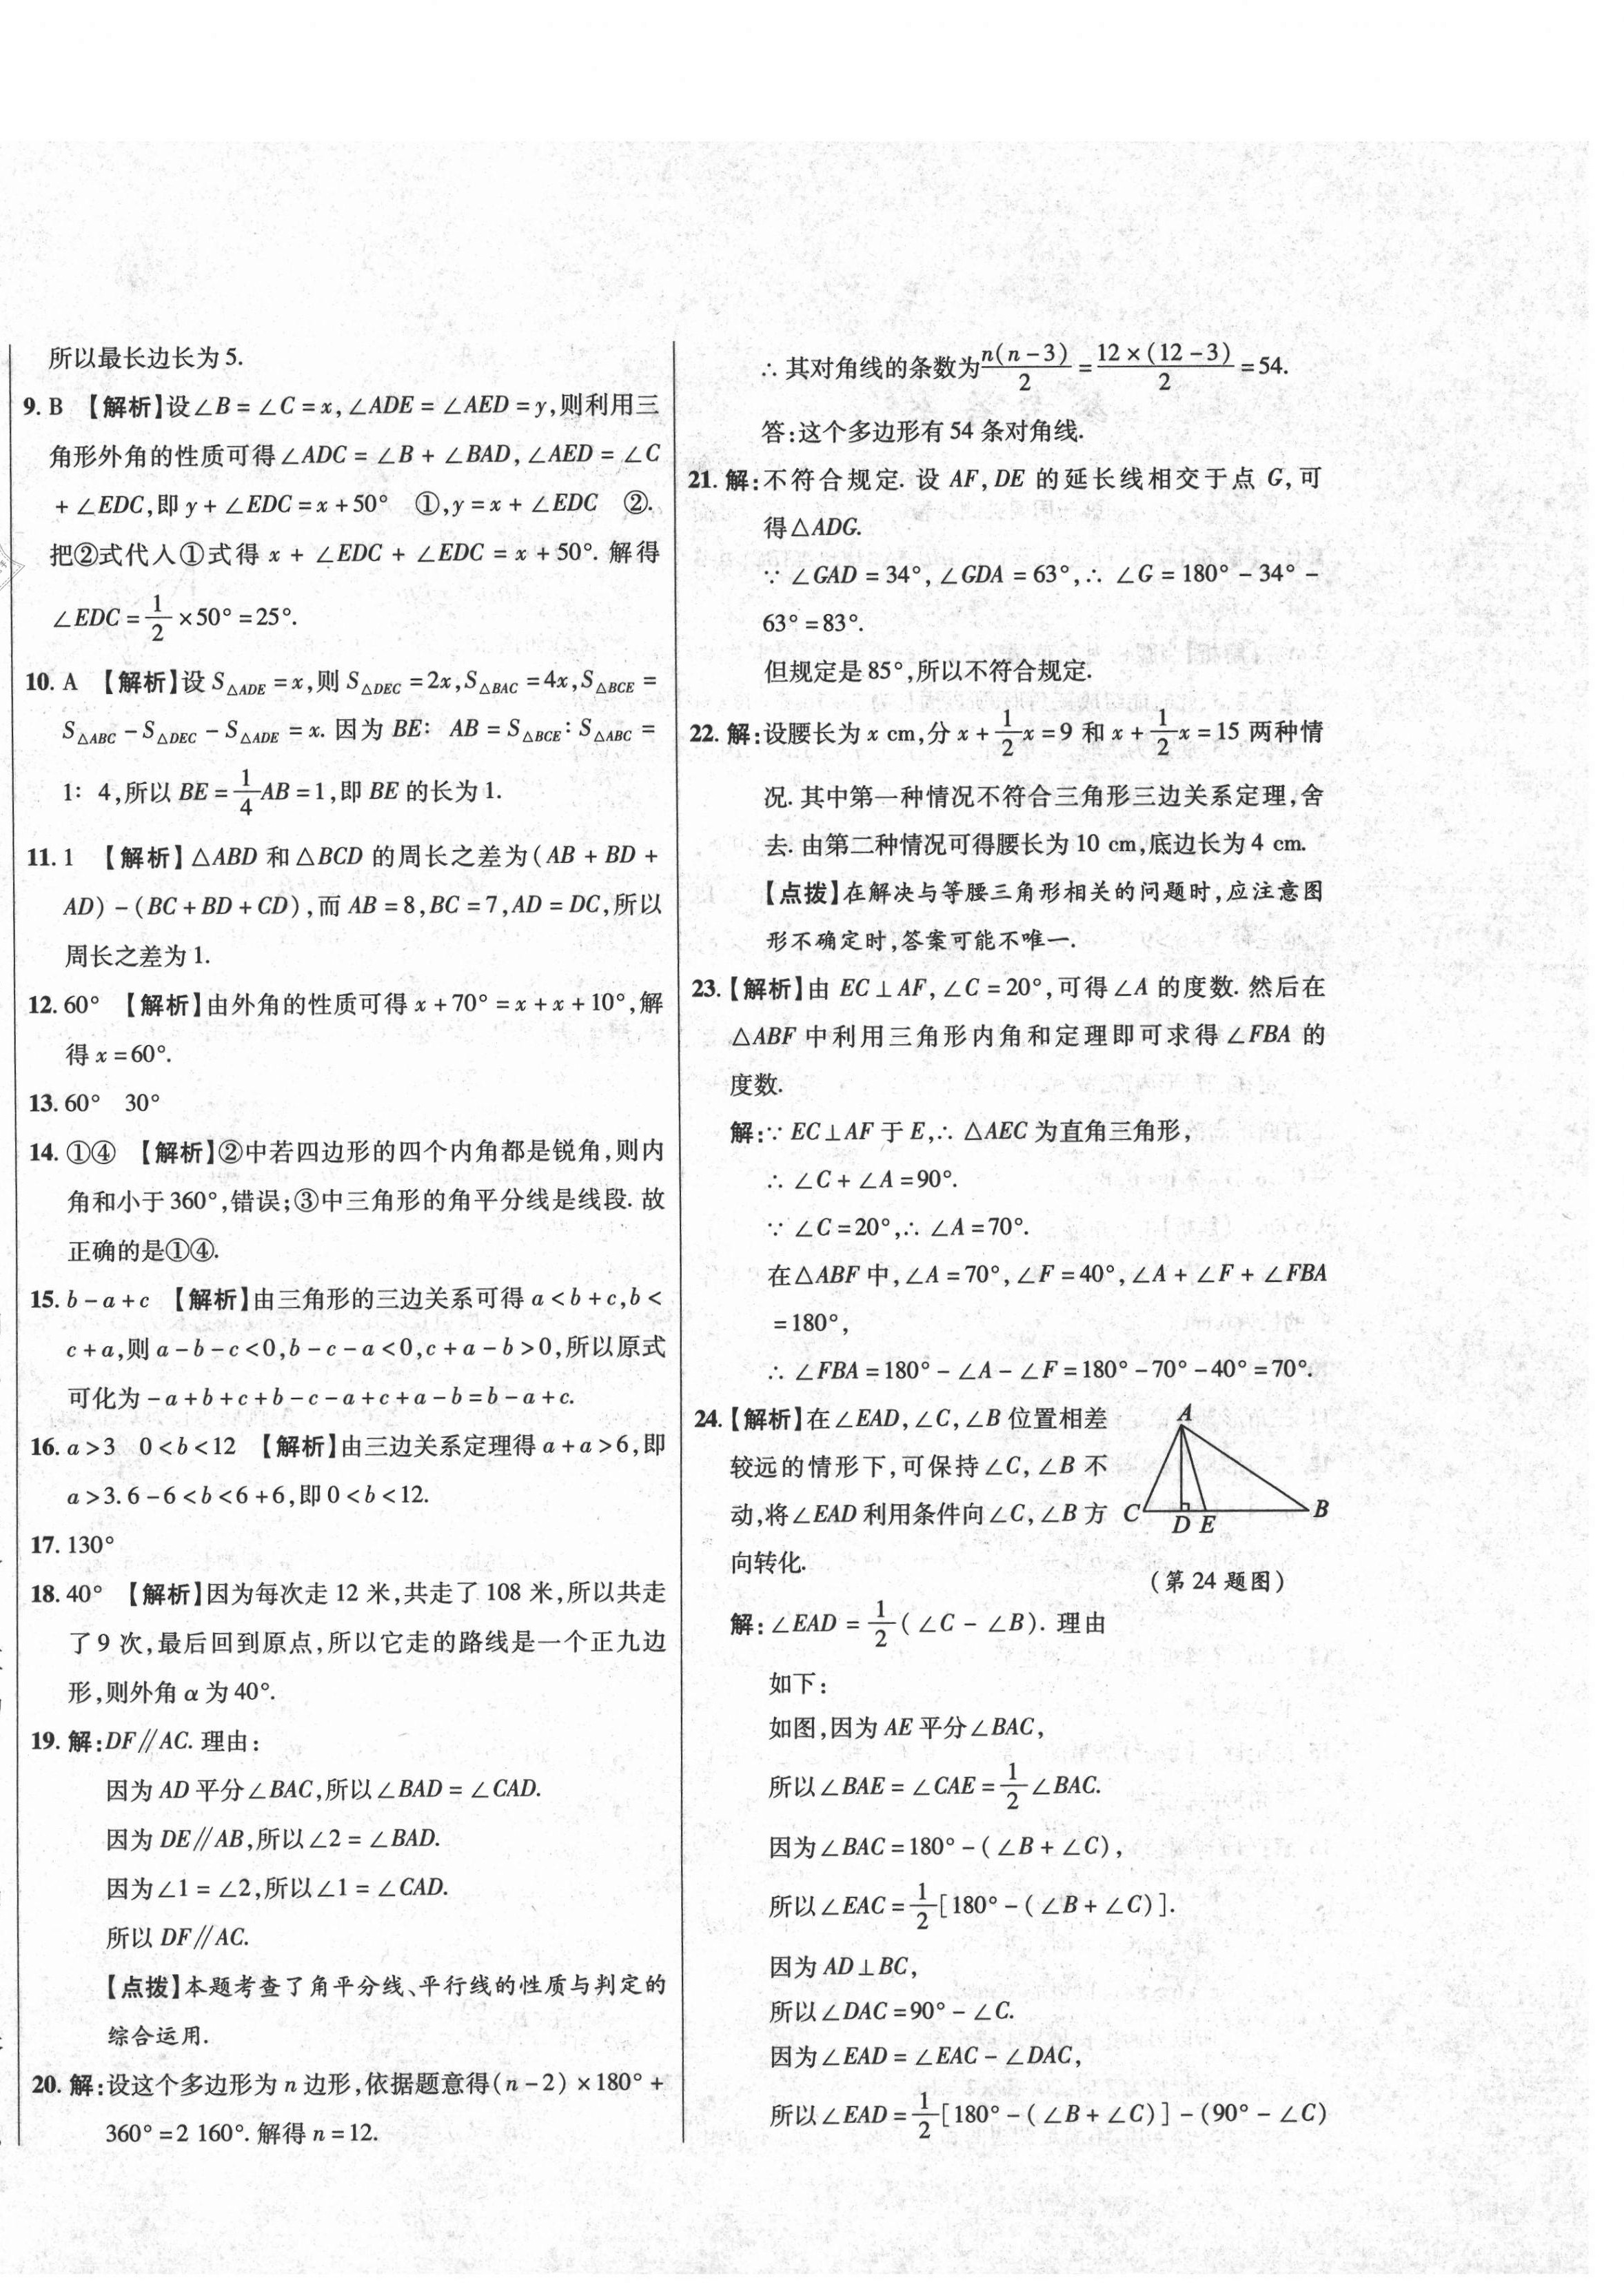 所以最长边长为5.
9. B 【解析】设∠B=∠C=x,∠ADE=∠AED=y,则利用三
角形外角的性质可得∠ADC=∠B+∠BAD,∠AED=∠C
+∠EDC,即y+∠EDC=x+50° ①,y=x+∠EDC ②.
把②式代人①式得x+∠EDC+∠EDC=x+50°. 解得
∠EDC=1/2×50°=25°.
10. A 【解析】设S△ADE=x,则S△DEC=2x,S△BAC=4x,S△BCE=
S△ABC-S△DEC-S△ADE=x. 因为BE: AB=S△BCE:S△ABC=
1: 4,所以BE=1/4AB=1,即BE的长为1.
11. 1 【解析】△ABD和△BCD的周长之差为(AB+BD+
AD)-(BC+BD+CD),而AB=8,BC=7,AD=DC,所以
周长之差为1.
12. 60° 【解析】由外角的性质可得x+70°=x+x+10°,解
得x=60°.
13. 60° 30°
14. ①④ 【解析】②中若四边形的四个内角都是锐角,则内
角和小于360°,错误;③中三角形的角平分线是线段. 故
正确的是①④.
15. b-a+c 【解析】由三角形的三边关系可得a<b+c,b<
c+a,则a-b-c<0,b-c-a<0,c+a-b>0,所以原式
可化为-a+b+c+b-c-a+c+a-b=b-a+c.
16. a>3 0<b<12 【解析】由三边关系定理得a+a>6,即
a>3.6-6<b<6+6,即0<b<12.
17. 130°
18. 40° 【解析】因为每次走12米,共走了108米,所以共走
了9次,最后回到原点,所以它走的路线是一个正九边
形,则外角α为40°.
19. 解:DF∥AC. 理由:
因为AD平分∠BAC,所以∠BAD=∠CAD.
因为DE∥AB,所以∠2=∠BAD.
因为∠1=∠2,所以∠1=∠CAD.
所以DF∥AC.
【点拨】本题考查了角平分线、平行线的性质与判定的
综合运用.
20. 解:设这个多边形为n边形,依据题意得(n-2)×180°+
360°=2 160°. 解得n=12.
∴其对角线的条数为n(n-3)/2=12×(12-3)/2=54.
答:这个多边形有54条对角线.
21. 解:不符合规定. 设AF,DE的延长线相交于点G,可
得△ADG.
∵∠GAD=34°,∠GDA=63°,∴∠G=180°-34°-
63°=83°.
但规定是85°,所以不符合规定.
22. 解:设腰长为x cm,分x+1/2x=9和x+1/2x=15两种情
况. 其中第一种情况不符合三角形三边关系定理,舍
去. 由第二种情况可得腰长为10 cm,底边长为4 cm.
【点拨】在解决与等腰三角形相关的问题时,应注意图
形不确定时,答案可能不唯一.
23. 【解析】由EC⊥AF,∠C=20°,可得∠A的度数. 然后在
△ABF中利用三角形内角和定理即可求得∠FBA的
度数.
解:∵EC⊥AF于E,∴△AEC为直角三角形,
∴∠C+∠A=90°.
∵∠C=20°,∴∠A=70°.
在△ABF中,∠A=70°,∠F=40°,∠A+∠F+∠FBA
=180°,
∴∠FBA=180°-∠A-∠F=180°-70°-40°=70°.
24. 【解析】在∠EAD,∠C,∠B位置相差
较远的情形下,可保持∠C,∠B不
动,将∠EAD利用条件向∠C,∠B方
向转化.
A
C
D E
B
(第24题图)
解:∠EAD=1/2(∠C-∠B). 理由
如下:
如图,因为AE平分∠BAC,
所以∠BAE=∠CAE=1/2∠BAC.
因为∠BAC=180°-(∠B+∠C),
所以∠EAC=1/2[180°-(∠B+∠C)].
因为AD⊥BC,
所以∠DAC=90°-∠C.
因为∠EAD=∠EAC-∠DAC,
所以∠EAD=1/2[180°-(∠B+∠C)]-(90°-∠C)